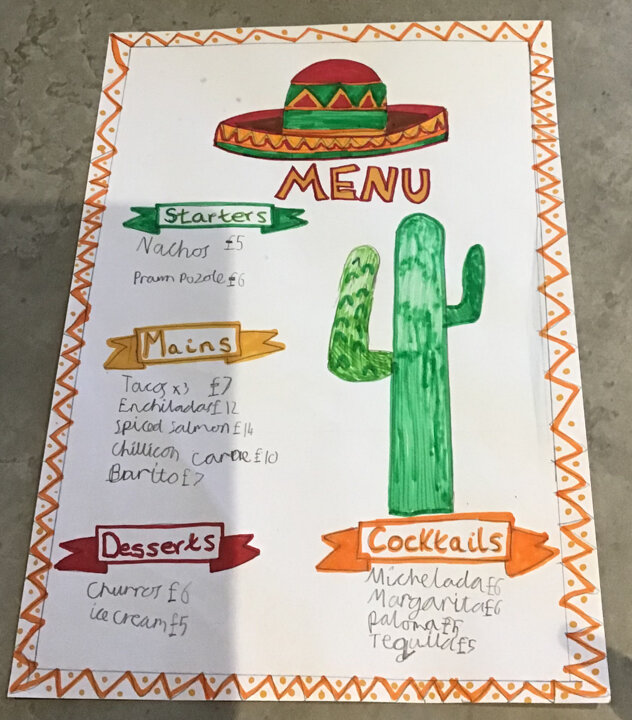 MENU
Starters
Nachos £5
Prawn Pozole £6
Mains
Tacos x3 £7
Enchiladas £12
spiced salmon £14
Chillicon carne £10
Barito £7
Desserts
Churros £6
ice cream £5
Cocktails
Michelada £6
Margarita £6
paloma £5
Tequlla £5